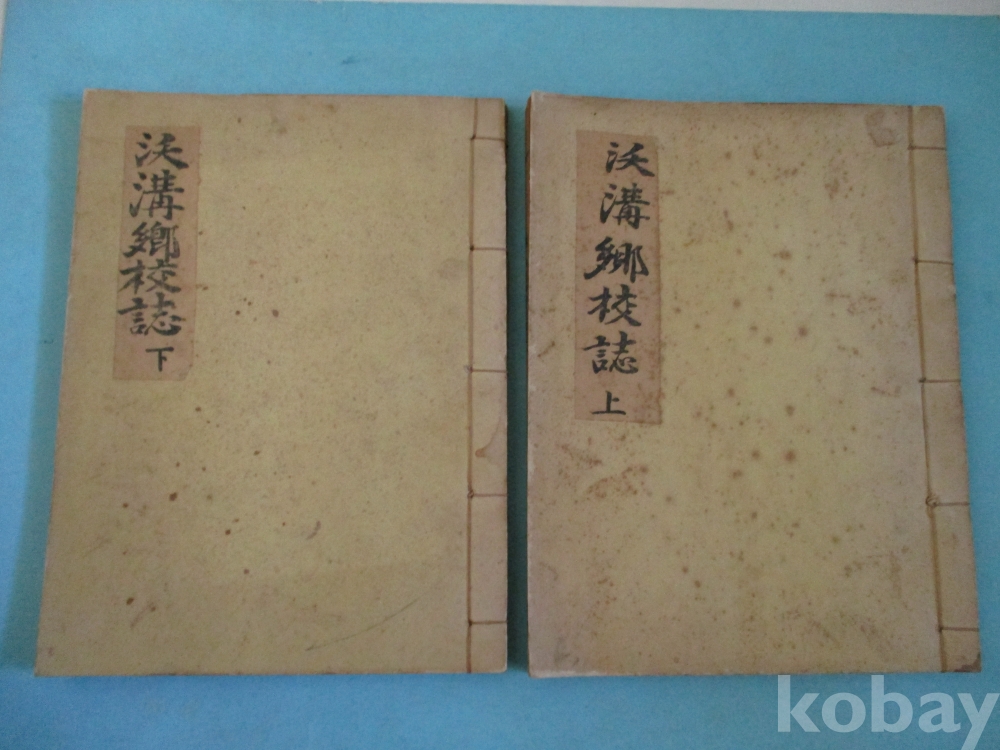 沃溝鄕校誌 上
沃溝鄕校誌 下
kobay